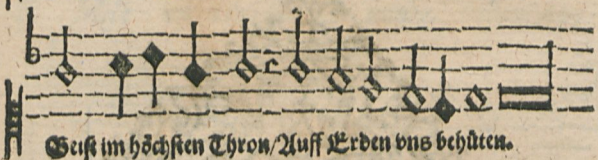 Geist im höchsten Thron/Auff Erden vns behüten.